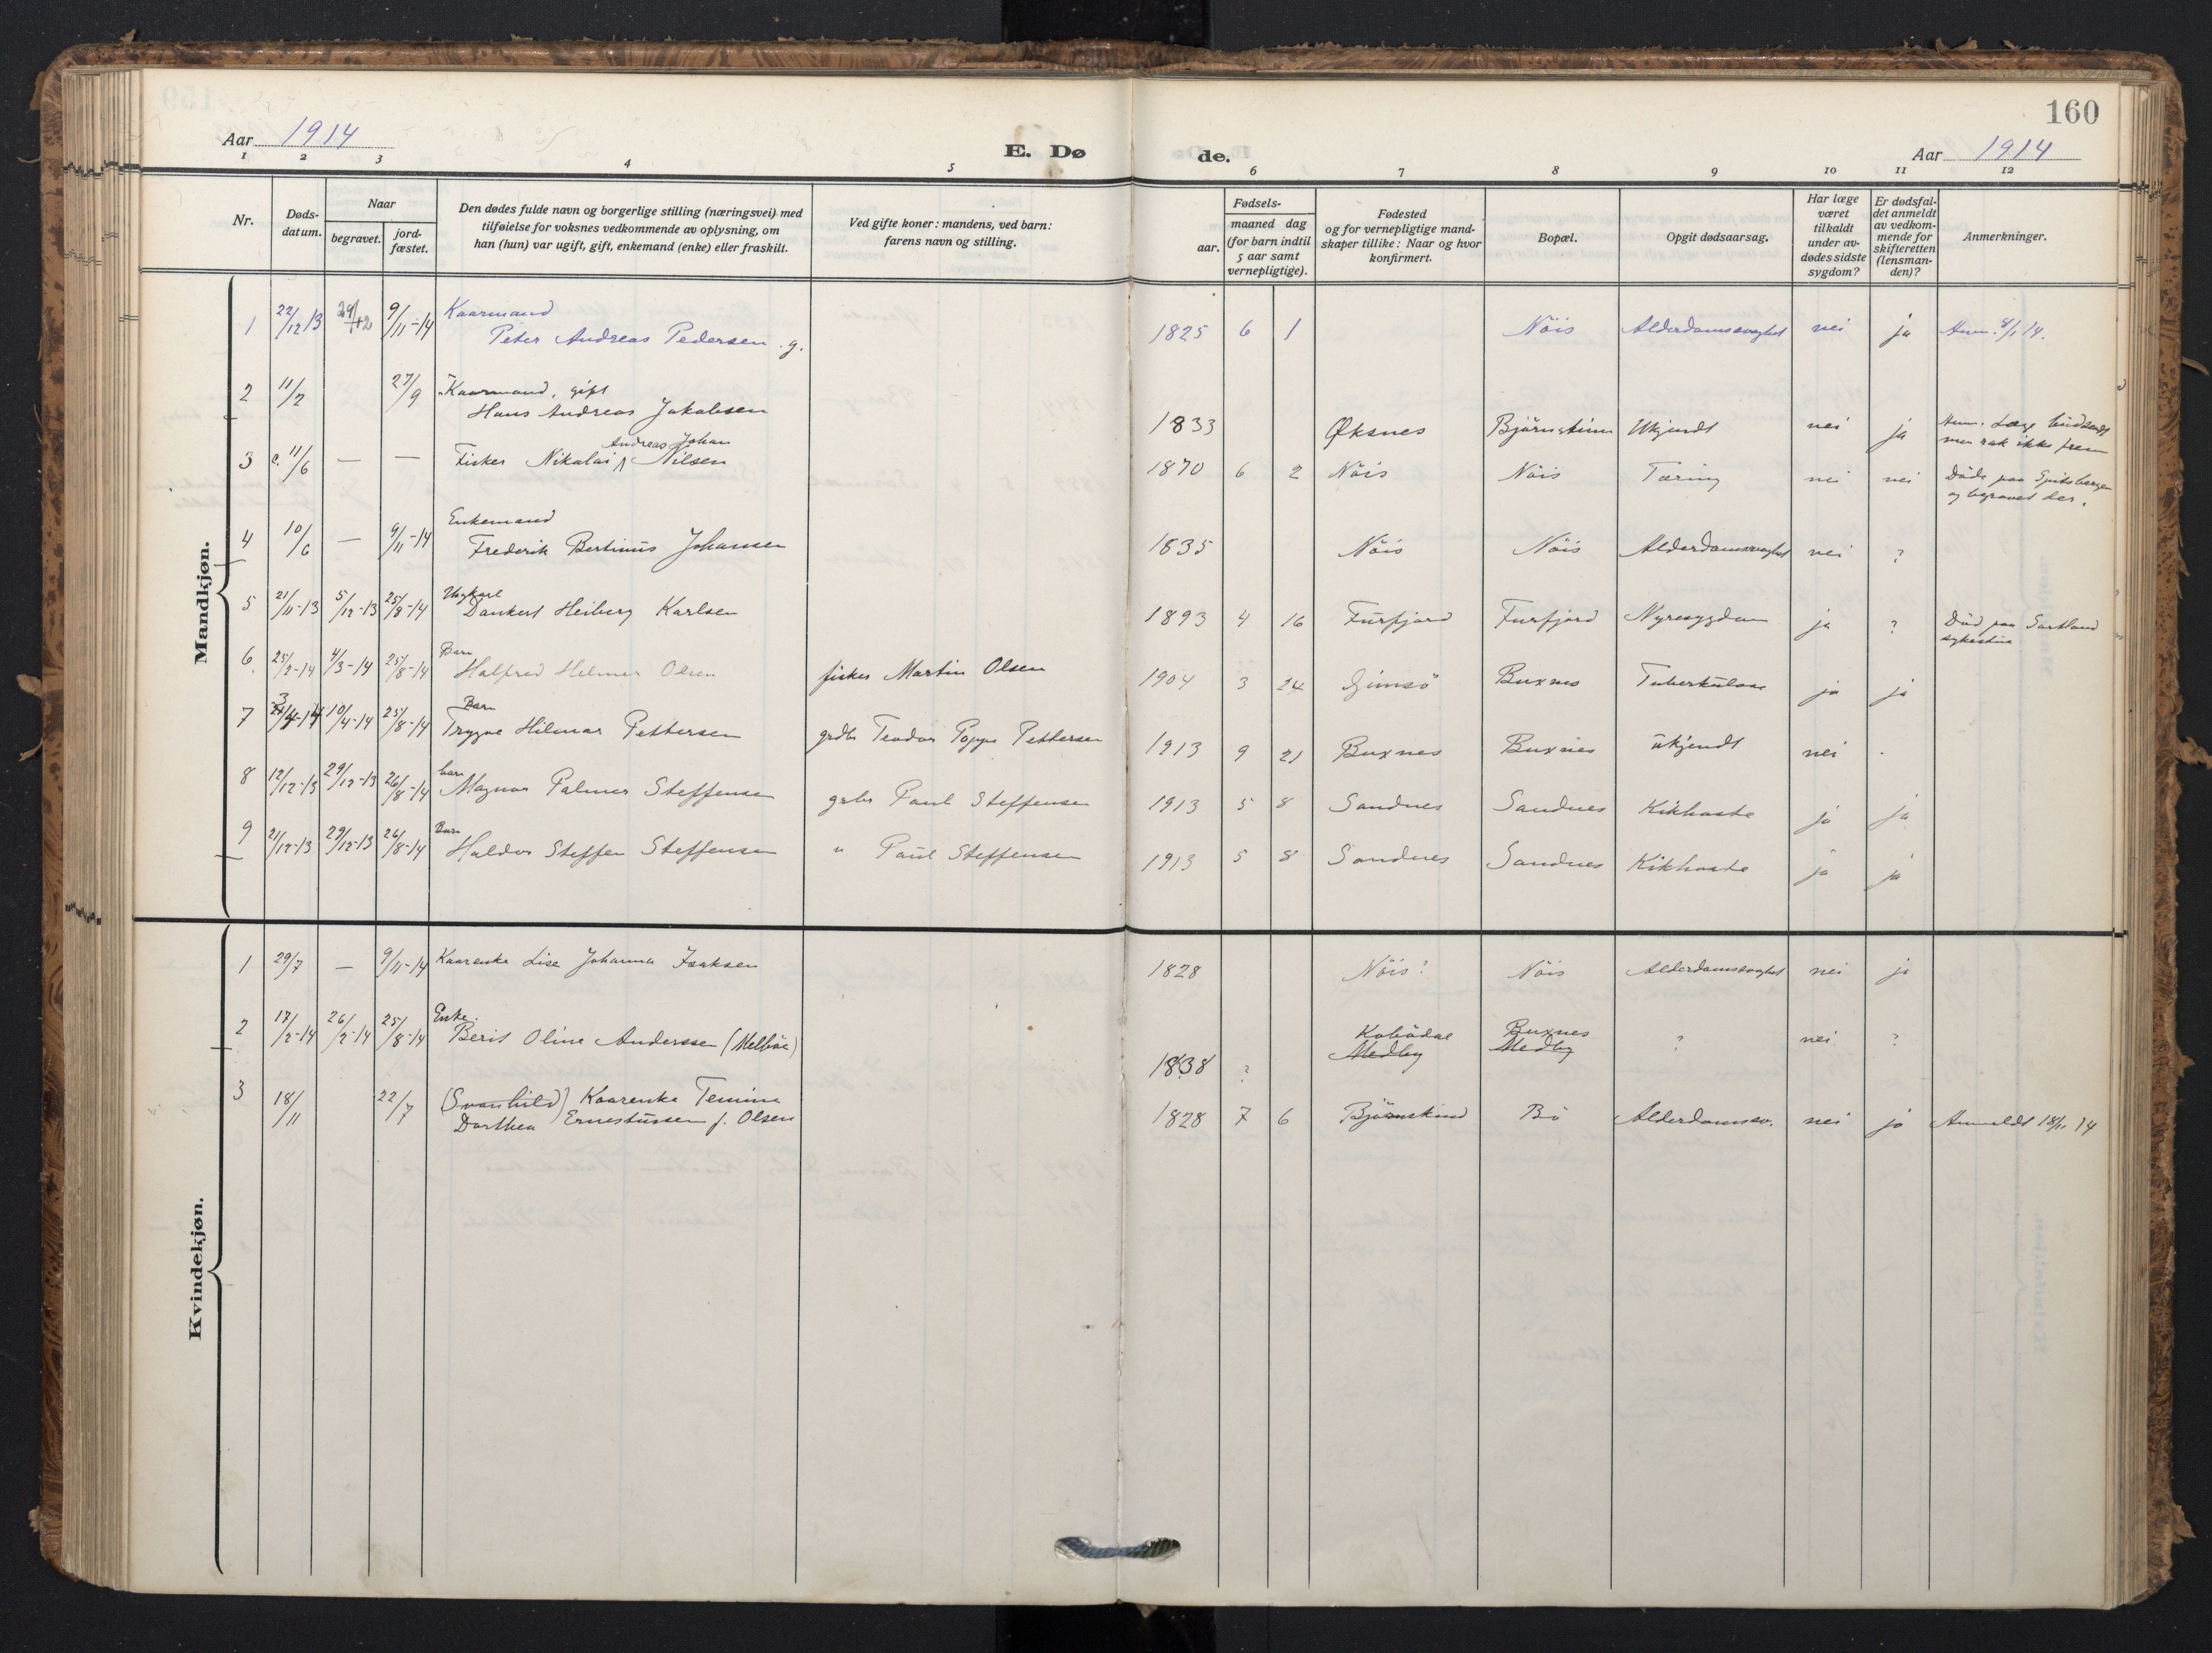 160
Aar 1914
E. Dø
de.
Aar 1914
1 2 3 4 5 6 7 8 9 10 11 12
Nr.
Døds-
datum.
Naar
begravet.
jord-
fæstet.
Den dødes fulde navn og borgerlige stilling (næringsvei) med
tilføielse for voksnes vedkommende av oplysning, om
han (hun) var ugift, gift, enkemand (enke) eller fraskilt.
Ved gifte koner: mandens, ved barn:
farens navn og stilling.
Fødsels-
aar.
maaned dag
(for barn indtil
5 aar samt
vernepligtige).
Fødested
og for vernepligtige mand-
skaper tillike: Naar og hvor
konfirmert.
Bopæl.
Opgit dødsaarsag.
Har læge
været
tilkaldt
under av-
dødes sidste
sygdom?
Er dødsfal-
det anmeldt
av vedkom-
mende for
skifteretten
(lensman-
den)?
Anmerkninger.
Mandkjøn.
Kaarmand
1 22/12 13 29/12 9/11-14 Peter Andreas Pedersen g. 1825 6 1 Nöis Alderdomssvaghet nei ja Anm. 8/1 14.
2 11/2 27/9 Kaarmand, gift
Hans Andreas Jakobsen 1833 Øksnes Ukjendt nei ja Anm. Læge
ikke frem
Andreas Johan
3 c. 11/6 — — Fisker Nikolai Nilsen 1870 6 2 Nöis Nöis Tæring nei nei Döde paa Spitsbergen
og begravet der.
Enkemand
4 10/6 — 9/11-14 Frederik Bertinus Johansen 1835 Nöis Nöis Alderdomssvaghet nei ?
Ungkarl
5 21/11-13 5/12-13 25/8-14 Dankert Heiberg Karlsen 1893 4 16 Furfjord Furfjord Nyresygdom ja ? Död paa Sortland
sykestue
Barn
6 25/2-14 4/3-14 25/8-14 Halfred Helmer Olsen fisker Martin Olsen 1904 3 24 Gimsö Buxnes Tuberkulose ja ja
Barn
7 3/4-14 10/4-14 25/8-14 Trygve Hilmar Pettersen grdbr Teodor Poppe Pettersen 1913 9 21 Buxnes Buxnes ukjendt nei
barn
8 12/12-13 29/12-13 26/8-14 Magnor Palmer Steffensen grbr Paul Steffensen 1913 5 8 Sandnes Sandnes Kikhoste ja ja
Barn
9 21/12-13 29/12-13 26/8-14 Haldor Steffen Steffensen " Paul Steffensen 1913 5 8 Sandnes Sandnes Kikhoste ja ja
Kvindekjøn.
1 29/7 — 9/11-14 Kaarenke Lise Johanna Isaksen 1828 Nöis? Nöis Alderdomssvaghet nei ja
Enke. Kobådal Buxnes
2 17/2-14 26/2-14 25/8-14 Berit Oline Anderssen (Melböe) 1838 ? Medby Medby ? nei ?
3 18/11 22/7 (Svanhild) Kaarenke Temina
Dorthea Ernestussen f. Olsen 1828 7 6 Björnskind Bö Alderdomssv. nei ja Anmeldt 18/11 14